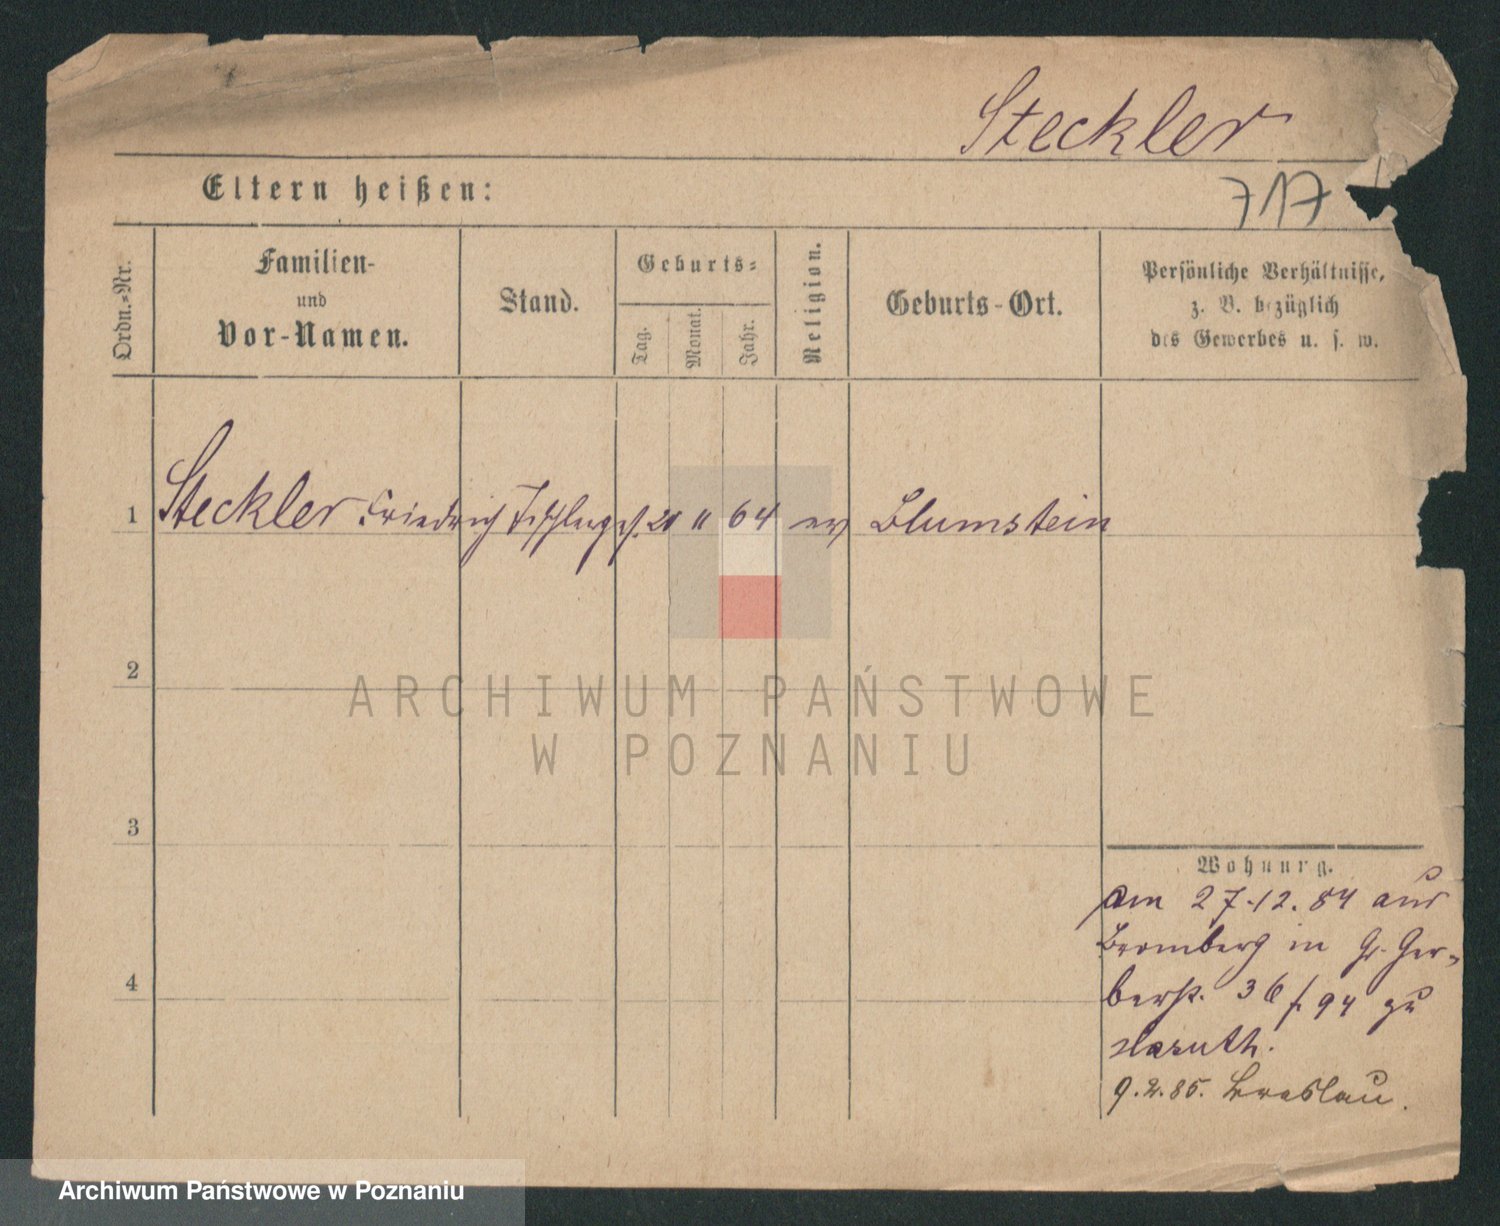 Steckler
Eltern heißen:
717
Ordn.-Nr.
Familien-
und
Vor-Namen.
Stand.
Geburts-
Tag.
Monat.
Jahr.
Religion.
Geburts-Ort.
Persönliche Verhältnisse,
z. B. bezüglich
des Gewerbes u. s. w.
1 Steckler Friedrich Tischlerges. 64 ev Blumstein
2
ARCHIWUM PAŃSTWOWE
W POZNANIU
3
Wohnung.
am 27.12.84 aus
Bromberg in Gr. Ger-
berst. 36 / 94 zu
4
9.2.85. Breslau.
Archiwum Państwowe w Poznaniu